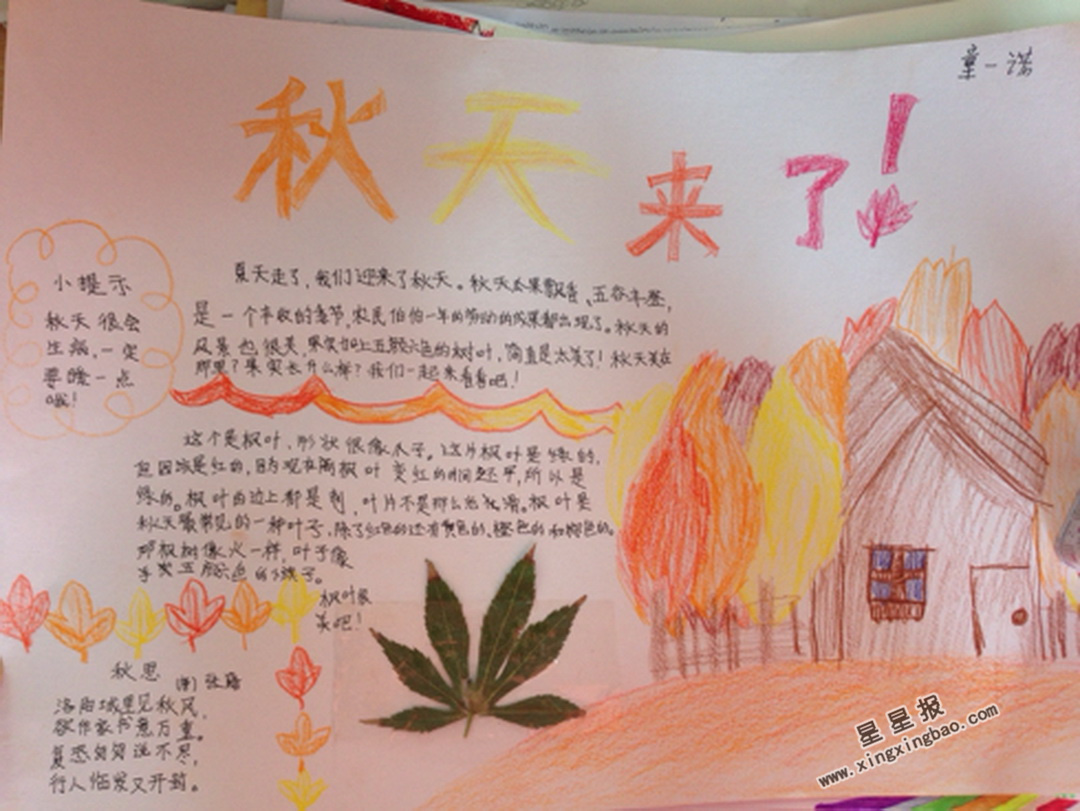 童一诺
秋天来了!
小提示
秋天很会
生病,一定
要暖一点
哦!
夏天走了,我们迎来了秋天。秋天瓜果飘香、五谷丰登,
是一个丰收的季节,农民伯伯一年的劳动的成果都出现了。秋天的
风景也很美,果实加上五颜六色的树叶,简直是太美了!秋天美在
那里?果实长什么样?我们一起来看看吧!
这个是枫叶,形状很像爪子。这片枫叶是绿的,
应该是红的,因为现在离枫叶变红的时间还早,所以是
绿的。枫叶的边上都是刺,叶片不是那么光滑。枫叶是
秋天最常见的一种叶子,除了红色的还有黄色的、橙色的和褐色的。
那枫树像火一样,叶子像
五颜六色的
枫叶很
美吧!
秋思
(唐) 张籍
洛阳城里见秋风,
欲作家书意万重。
复恐匆匆说不尽,
行人临发又开封。
星星报
www.xingxingbao.com